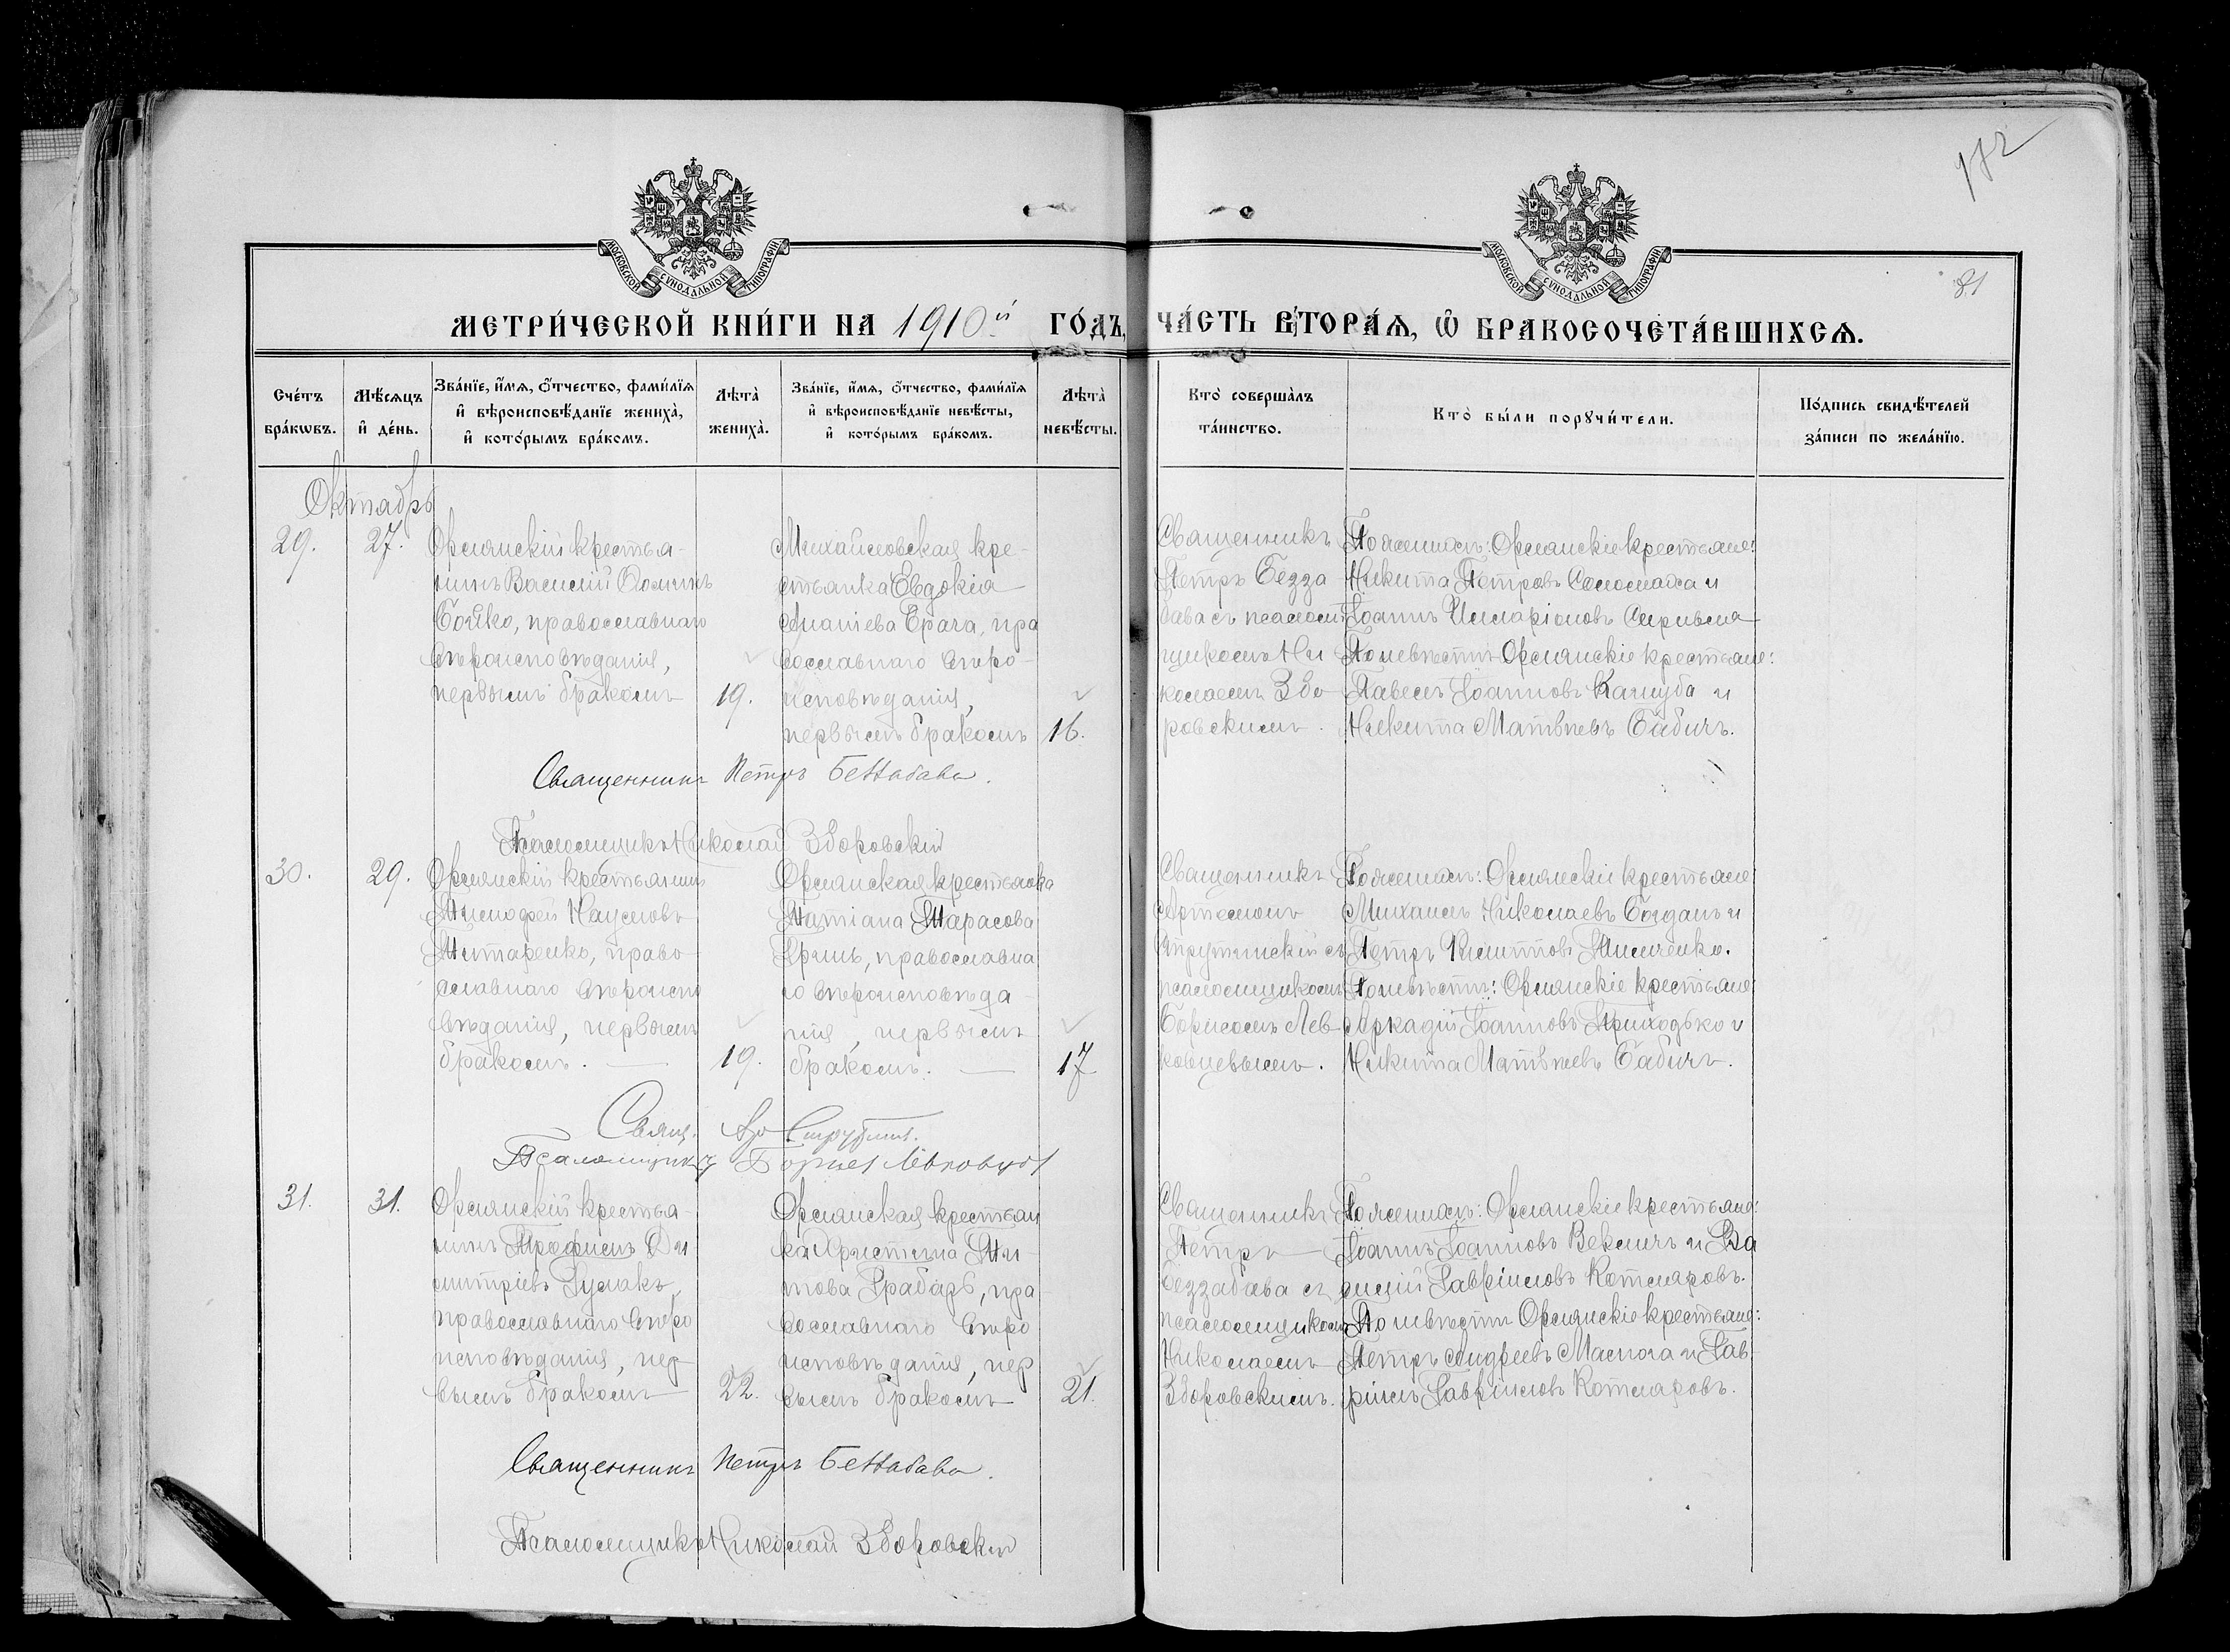 182
МОСКОВСКОЙ СѴНОДАЛЬНОЙ ТИПОГРАФІИ
МОСКОВСКОЙ СѴНОДАЛЬНОЙ ТИПОГРАФІИ
81
МЕТРИ́ЧЕСКОЙ КНИ́ГИ НА 1910й ГО́ДЪ, ЧА́СТЬ ВТОРА́Ѧ, Ѿ БРАКОСОЧЕТА́ВШИХСѦ.
Сче́тъ бра́кѡвъ.
Мѣ́сѧцъ и҆ де́нь.
Зва́нїе, и҆́мѧ, ѻ҆́тчество, фами́лїѧ
и҆ вѣроисповѣ́данїе жениха̀,
и҆ кото́рымъ бра́комъ.
Лѣта̀ жениха̀.
Зва́нїе, и҆́мѧ, ѻ҆́тчество, фами́лїѧ
и҆ вѣроисповѣ́данїе невѣ́сты,
и҆ кото́рымъ бра́комъ.
Лѣта̀ невѣ́сты.
Кто̀ соверша́лъ
та́инство.
Кто̀ бы́ли порꙋчи́тели.
По́дпись свидѣ́телей
за́писи по жела́нїю.
Октябрь
29.
27.
Орлянскій крестья-
нинъ Василій
Бойко, православнаго
вѣроисповѣданія,
первымъ бракомъ
19.
Михайловская кре-
стьянка Евдокія
Ананіева Ерага, пра
вославнаго вѣро-
исповѣданія,
первымъ бракомъ
16.
Священникъ
Петръ Безза
бава съ псалом
щикомъ Ни
колаемъ Збо
ровскимъ.
По женихѣ: Орлянскіе крестьяне:
Никита Петровъ Соломаха и
Іоаннъ Иларіоновъ
По невѣстѣ Орлянскіе крестьяне:
Павелъ Іоанновъ Кашуба и
Никита Матвѣевъ Бабичъ.
Священникъ Петръ Беззабава.
Псаломщикъ Николай Зборовскій
30.
29.
Орлянскій крестьянинъ
Тимофей Наумовъ
Титаренко, право
славнаго вѣроиспо
вѣданія, первымъ
бракомъ.
19.
Орлянская крестьянка
Татіана Тарасова
православна
го вѣроисповѣда-
нія, первымъ
бракомъ.
17
Священникъ
Артемонъ
Спрутинскій съ
псаломщикомъ
Борисомъ Лев-
ковцевымъ.
По женихѣ: Орлянскіе крестьяне:
Михаилъ Николаевъ Богданъ и
Петръ Тимченко.
По невѣстѣ: Орлянскіе крестьяне:
Аркадій Іоанновъ Приходько и
Никита Матвѣевъ Бабичъ.
Свящ. Ар Спрутин.
Псаломщикъ Борисъ Левковцовъ
31.
31.
Орлянскій крестья-
нинъ Трофимъ Ди
митріевъ Гуслакъ,
православнаго вѣро
исповѣданія, пер
вымъ бракомъ
22.
Орлянская крестьян
ка Христина Ти-
това Грабарь, пра
вославнаго вѣро
исповѣданія, пер
вымъ бракомъ
21.
Священникъ
Петръ
Беззабава съ
псаломщикомъ
Николаемъ
Зборовскимъ.
По женихѣ: Орлянскіе крестьяне:
Іоаннъ Іоанновъ Векличъ и Ва
силій Гавріиловъ Котляровъ.
По невѣстѣ Орлянскіе крестьяне:
Петръ Андреевъ Маснога и Гав
ріилъ Гавріиловъ Котляровъ.
Священникъ Петръ Беззабава.
Псаломщикъ Николай Зборовскій